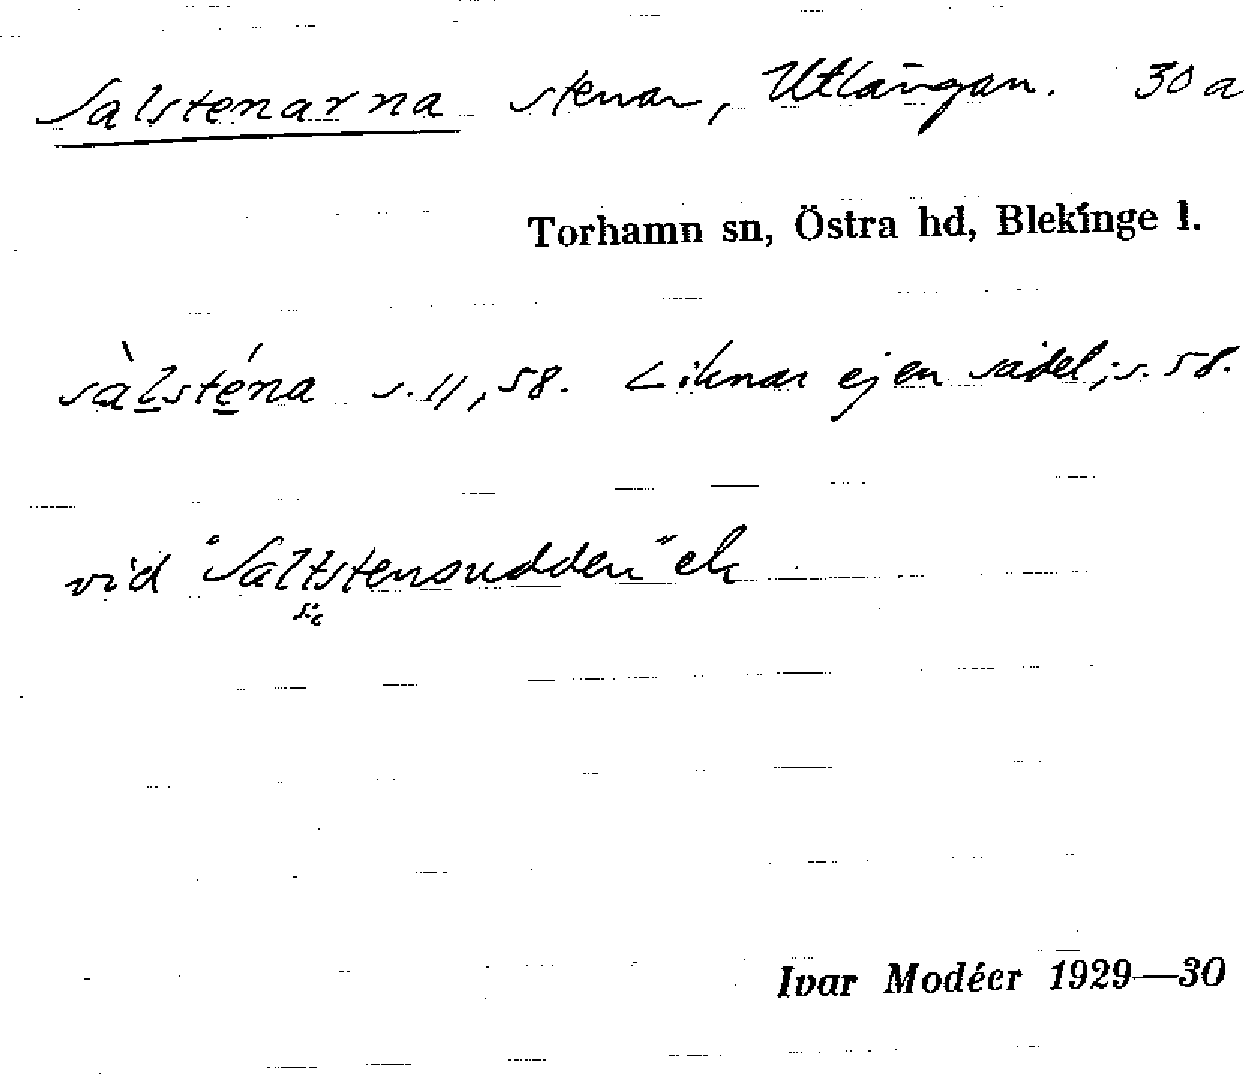 Salstenarna stenar, Utlängan. 30 a
Torhamn sn, Östra hd, Blekinge l.
sàlsténa s. 11, 58. Liknar ej en sadel; s. 58.
vid "Saltstensudden" ek
sic
Ivar Modéer 1929—30